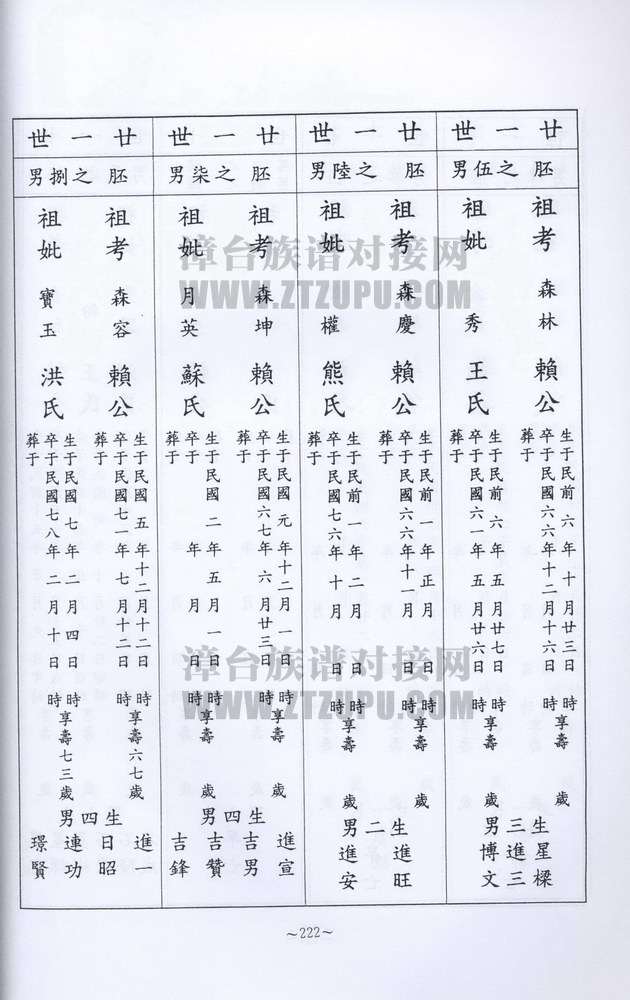 廿一世
胚之伍男
祖考 森林 賴公
生于民前六年十月廿三日 時享壽 歲
卒于民國六六年十二月十六日
葬于
祖妣 秀 王氏
生于民前六年五月廿七日 時享壽 歲
卒于民國六一年五月廿六日 時
葬于
生三男
星樑
進三
博文
廿一世
胚之陸男
祖考 森慶 賴公
生于民前一年正月 日 時享壽 歲
卒于民國六六年十月 日 時
葬于
祖妣 權 熊氏
生于民前一年二月 日 時享壽 歲
卒于民國七六年十月 日 時
葬于
生二男
進旺
進安
廿一世
胚之柒男
祖考 森坤 賴公
生于民國元年十二月一日 時享壽 歲
卒于民國六七年六月廿三日 時
葬于
祖妣 月英 蘇氏
生于民國二年五月一日 時享壽 歲
卒于 年 月 日 時
葬于
生四男
進宣
吉男
吉贊
吉鋒
廿一世
胚之捌男
祖考 森容 賴公
生于民國五年十二月十二日 時享壽六七歲
卒于民國七一年七月十二日 時
葬于
祖妣 寶玉 洪氏
生于民國七年二月四日 時享壽七三歲
卒于民國七八年二月十日 時
葬于
生四男
進一
日昭
連功
璟賢
~222~
漳台族谱对接网
WWW.ZTZUPU.COM
漳台族谱对接网
WWW.ZTZUPU.COM